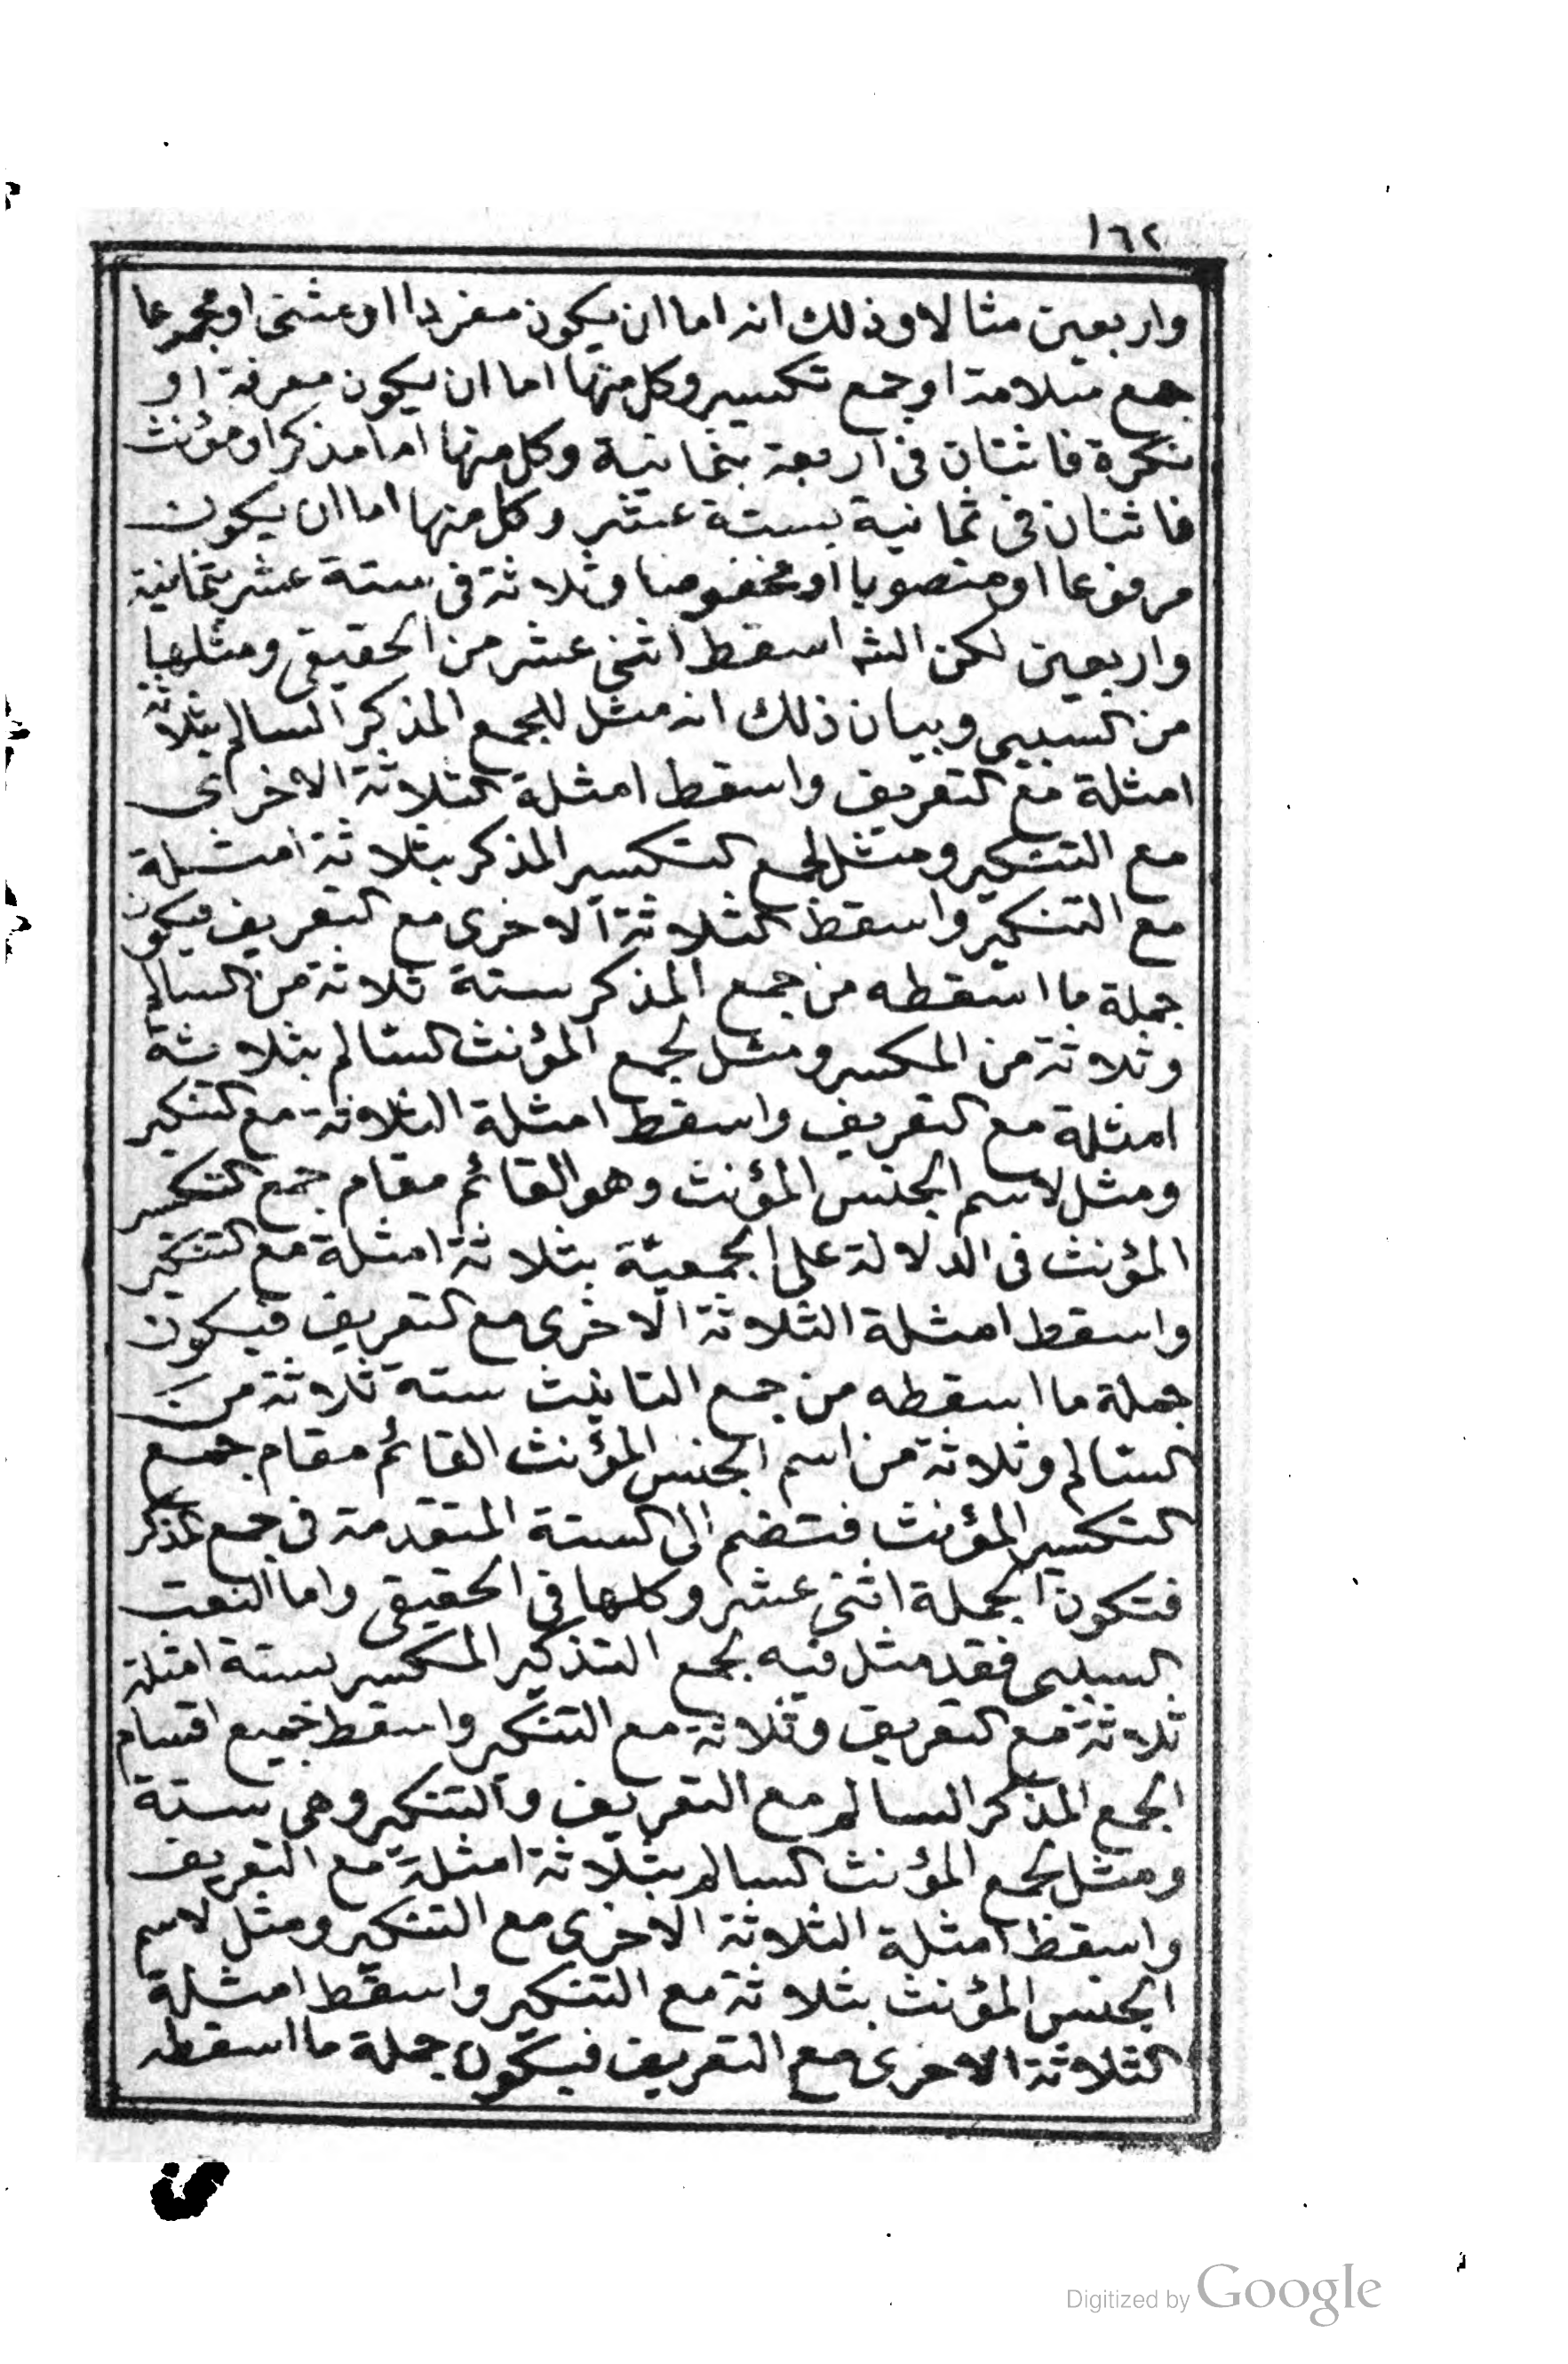 ١٦٢
واربعين مثالا وذلك انه اما ان يكون مفردا او مثنى او مجموعا
جمع سلامة او جمع تكسير وكل منها اما ان يكون معرفة او
نكرة فاثنان فى اربعة بثمانية وكل منها اما مذكرا او مؤنث
فاثنان فى ثمانية بستة عشر وكل منها اما ان يكون
مرفوعا او منصوبا او مخفوضا وثلاثة فى ستة عشر بثمانية
واربعين لكن الش اسقط اثنى عشر من الحقيقى ومثلها
من السببى وبيان ذلك انه مثل للجمع المذكر السالم بثلاثة
امثلة مع التعريف واسقط امثلة الثلاثة الاخرى
مع التنكير ومثل لجمع التكسير المذكر بثلاثة امثلة
مع التنكير واسقط الثلاثة الاخرى مع التعريف فيكون
جملة ما اسقطه من جمع المذكر ستة ثلاثة من السالم
وثلاثة من المكسر ومثل لجمع المؤنث السالم بثلاثة
امثلة مع التعريف واسقط امثلة الثلاثة مع التنكير
ومثل لاسم الجنس المؤنث وهو القائم مقام جمع التكسير
المؤنث فى الدلالة على الجمعية بثلاثة امثلة مع التنكير
واسقط امثلة الثلاثة الاخرى مع التعريف فيكون
جملة ما اسقطه من جمع التانيث ستة ثلاثة من
السالم وثلاثة من اسم الجنس المؤنث القائم مقام جمع
التكسير المؤنث فتضم الى الستة المتقدمة فى جمع المذكر
فتكون الجملة اثنى عشر وكلها فى الحقيقى واما النعت
السببى فقد مثل فيه لجمع التذكير المكسر بستة امثلة
ثلاثة مع التعريف وثلاثة مع التنكير واسقط جميع اقسام
الجمع المذكر السالم مع التعريف والتنكير وهى ستة
ومثل لجمع المؤنث السالم بثلاثة امثلة مع التعريف
واسقط امثلة الثلاثة الاخرى مع التنكير ومثل لاسم
الجنس المؤنث بثلاثة مع التنكير واسقط امثلة
الثلاثة الاخرى مع التعريف فيكون جملة ما اسقطه
Digitized by Google